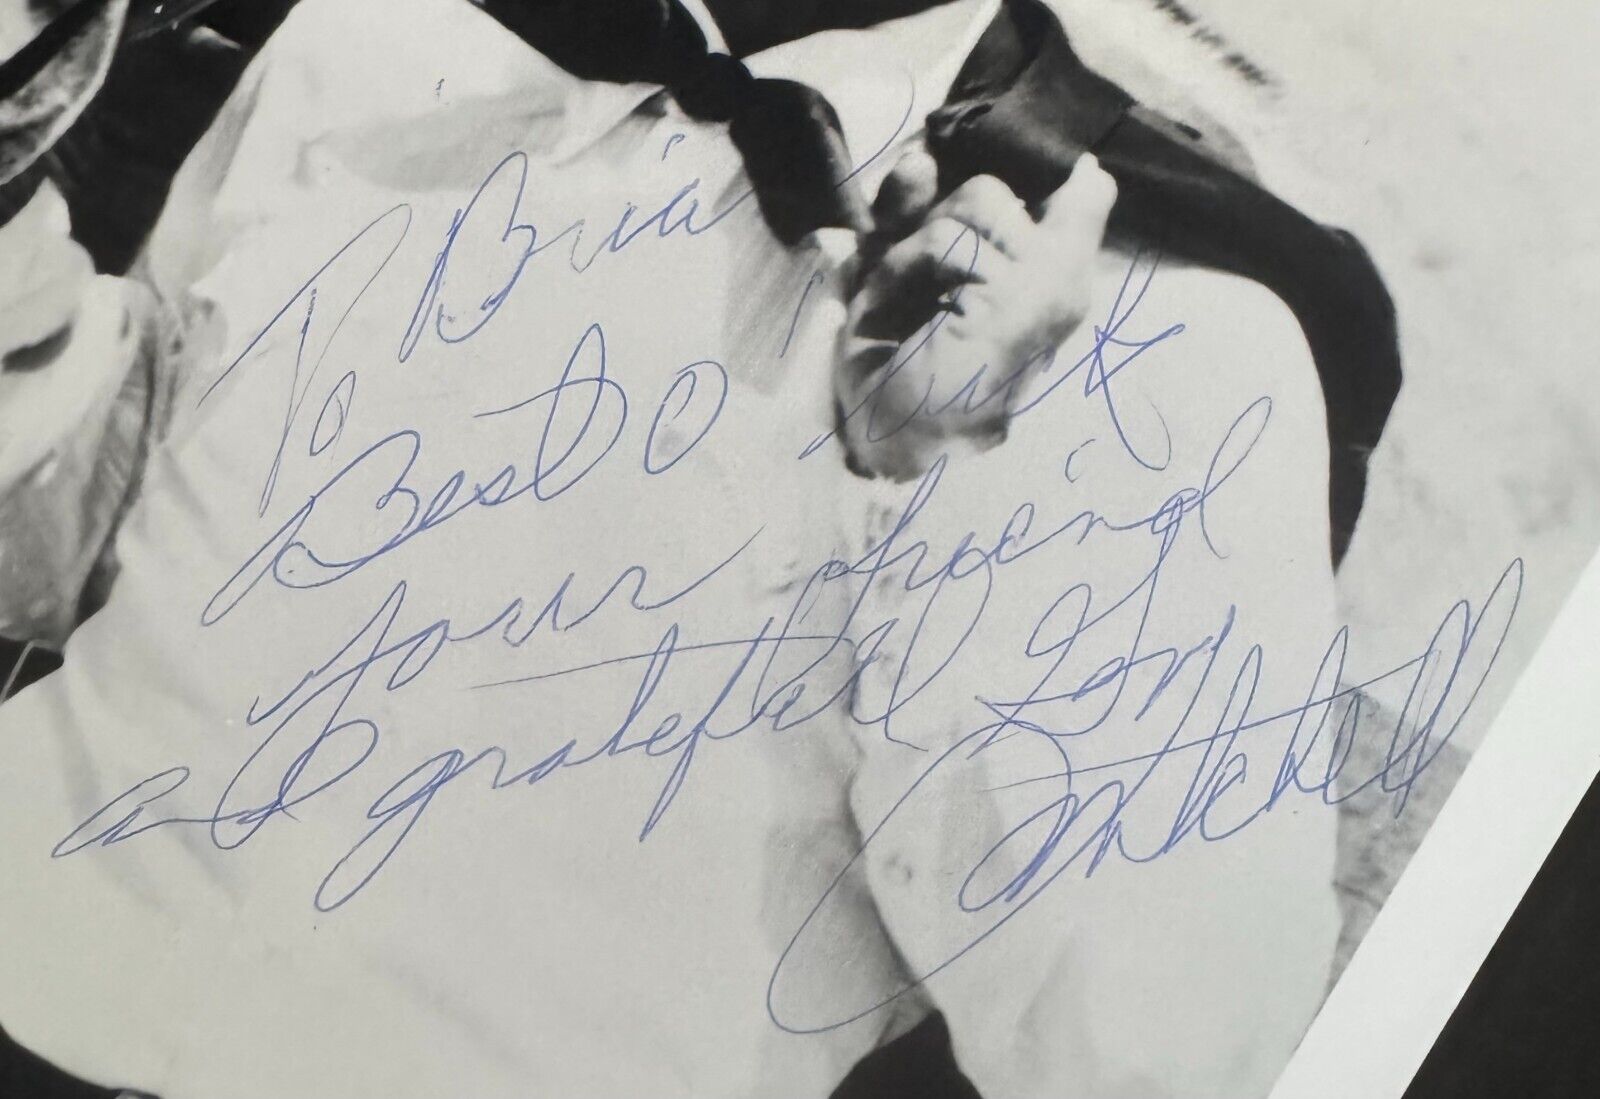 To Brian
Best O' luck
Your freind
and grateful
Mitchell